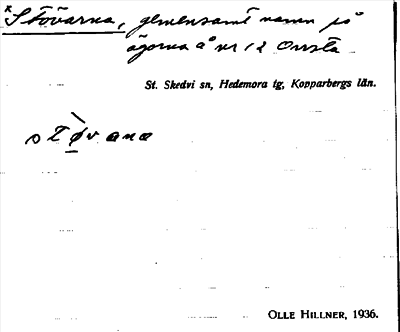 x Stövarna, gemensamt namn på
ägorna å nr 12 Onsta
St. Skedvi sn, Hedemora tg, Kopparbergs län.
stø̀vana
OLLE HILLNER, 1936.